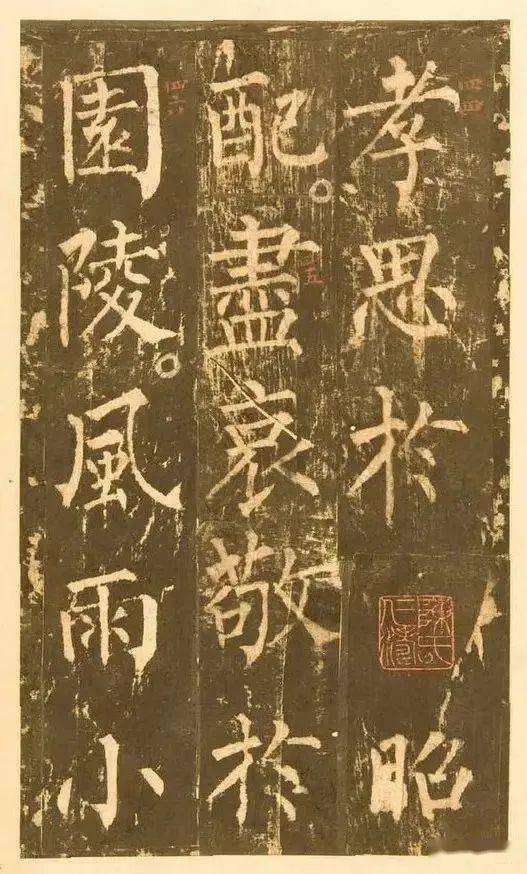 孝思於昭
配。盡哀敬於
園陵。風雨小